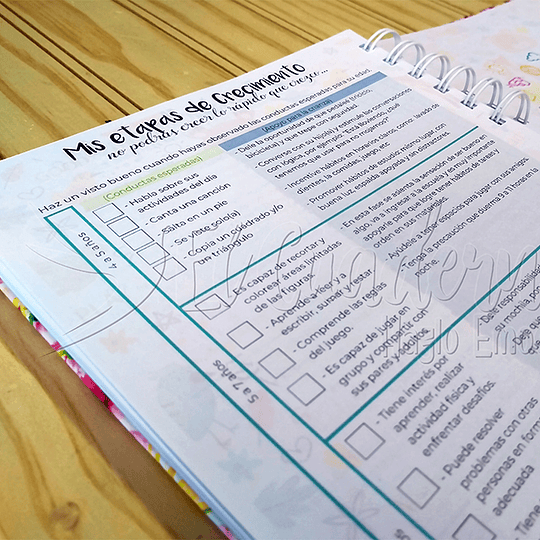 Mis etapas de Crecimiento
no podrás creer lo rápido que crezco...
Haz un visto bueno cuando hayas observado las conductas esperadas para su edad.
(Conductas esperadas)
4 a 5 años
- Habla sobre sus
actividades del día
- Canta una canción
- Salta en un pie
- Se viste solo(a)
- Copia un cuadrado y/o
un triángulo
(Apoyo para la crianza)
- Dele la oportunidad de que pedalee (triciclo,
bicicleta) y que trepe con seguridad.
- Converse con su hijo(a) y estimule las conversaciones
con lógica, por ejemplo, "Está lloviendo, ¿Qué
tenemos que usar para no mojarnos?"
- Incentive hábitos en horarios claros, como: lavado de
dientes, la comida, juego, etc.
- Promover hábitos de estudio mismo lugar con
buena luz, útiles estandarizando un horario.
5 a 7 años
- Es capaz de recortar y
colorear áreas limitadas
de las figuras
- Aprende a leer y a
escribir, sumar y restar.
- Comprende las reglas
del juego.
- Es capaz de jugar en
grupo y compartir con
sus pares y adultos.
- En esta fase se asienta la sensación de ser bueno en
algo, va a ingresar a la escuela y es muy importante
apoyarle para que logre tener hábitos de lavado y
orden en sus materiales.
- Ayúdele a tener espacios para jugar con los amigos.
- Tenga la precaución que duerma 9 a 11 horas en la
noche.
- Tiene interés por
aprender, realizar
actividad física y
enfrentar desafíos.
- Puede resolver
problemas con otras
personas en forma
adecuada
- Dele responsabilidad
su mochila,
- Dele
que
- Dele
la
Mi Cuaderno
Hazlo